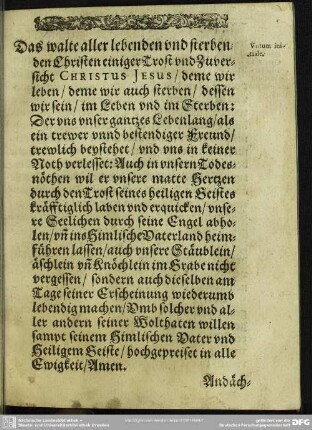 Das walte aller lebenden vnd sterben-
den Christen einiger Trost vnd Zuver-
sicht CHRISTUS JESUS / deme wir
leben / deme wir auch sterben / dessen
wir sein / im Leben vnd im Sterben:
Der vns vnser gantzes Lebenlang / als
ein trewer vnnd bestendiger Freund /
trewlich beystehet / vnd vns in keiner
Noth verlesset: Auch in vnsern Todes-
nöthen wil er vnsere matte Hertzen
durch den Trost seines heiligen Geistes
kräfftiglich laben vnd erquicken / vnse-
re Seelichen durch seine Engel abho-
len / vñ ins Himlische Vaterland heim-
führen lassen / auch vnsere Stäublein /
äschlein vñ Knöchlein im Grabe nicht
vergessen / sondern auch dieselben am
Tage seiner Erscheinung wiederumb
lebendig machen / Vmb solcher vnd al-
ler andern seiner Wolthaten willen
sampt seinem Himlischen Vater vnd
Heiligem Geiste / hochgepreiset in alle
Ewigkeit / Amen.
Andäch-
Votum ini-
tiale.